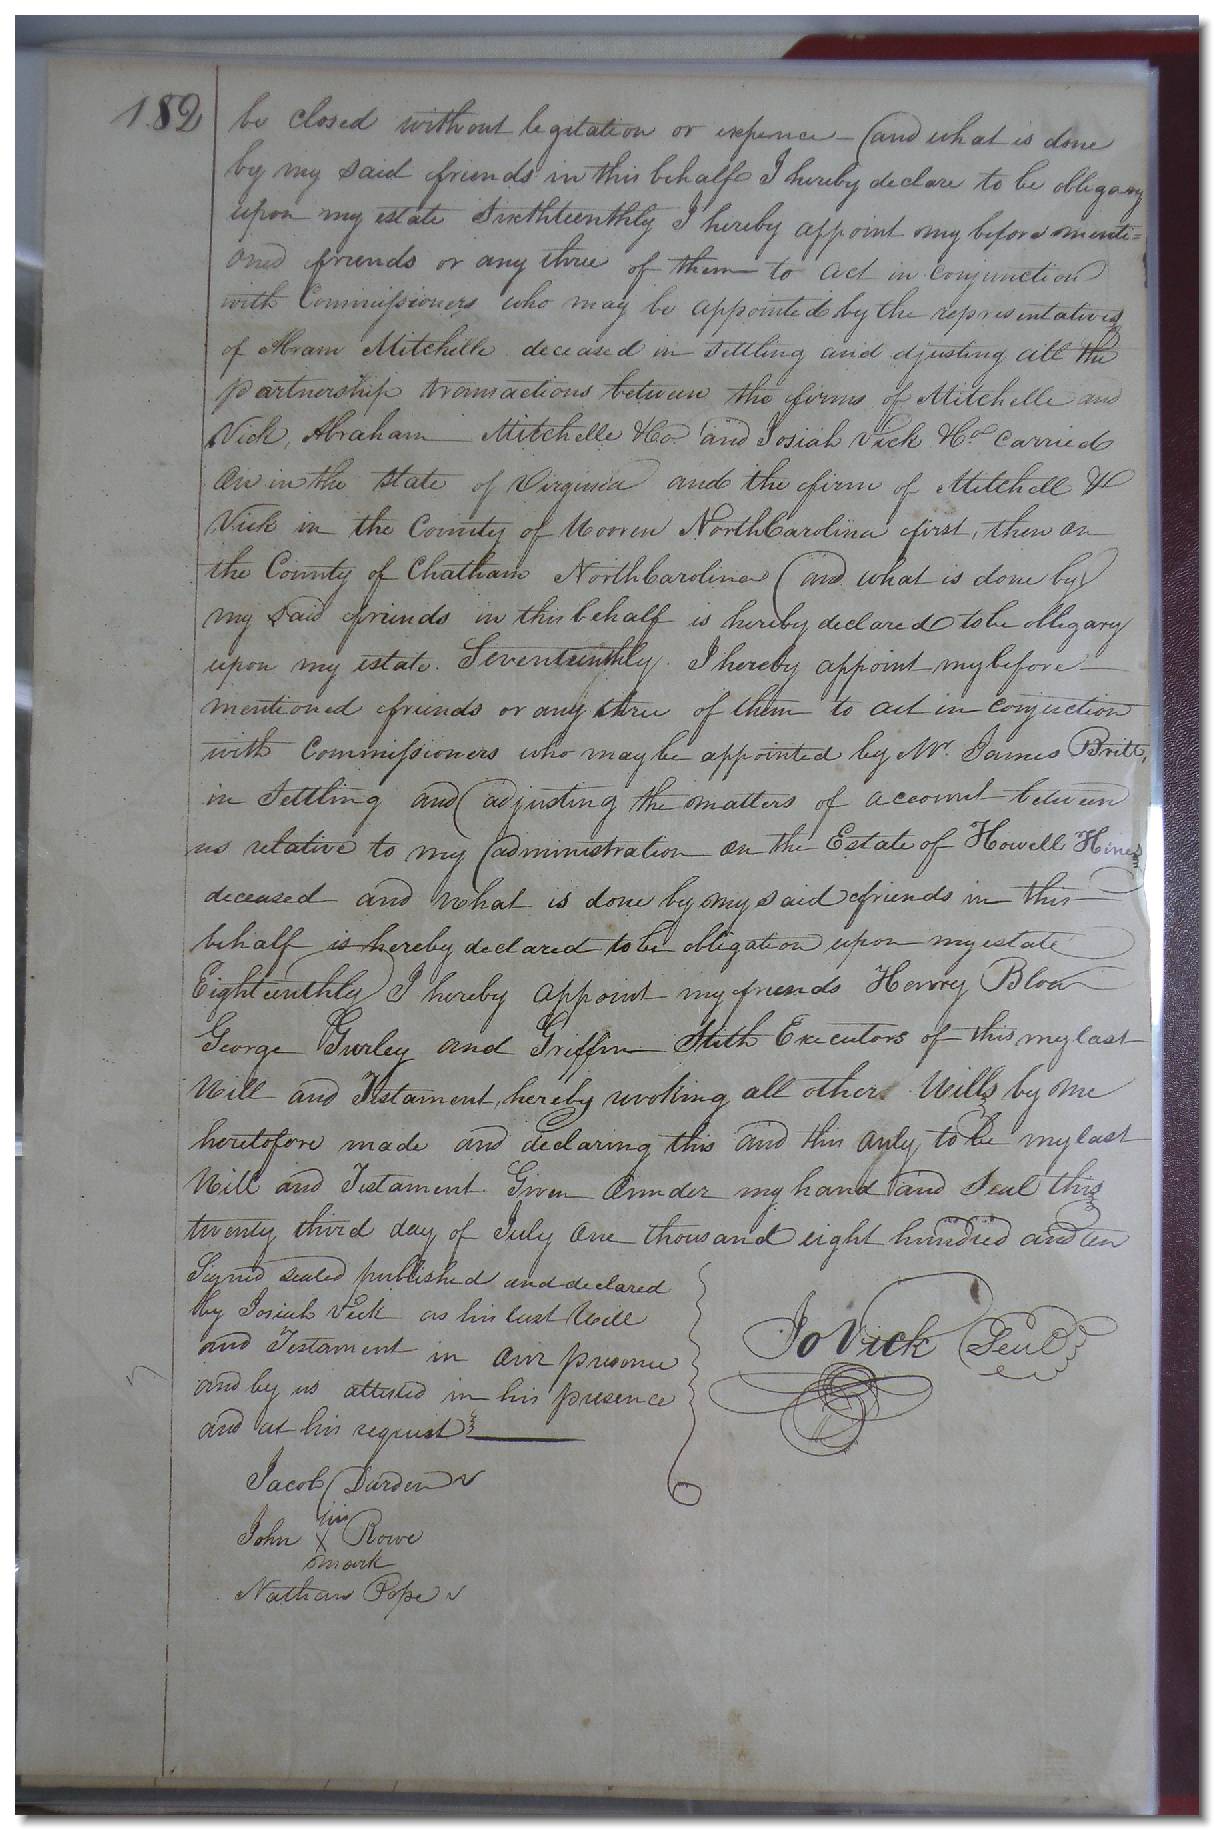 182
be closed without legitation or expence – and what is done
by my said friends in this behalf I hereby declare to be obligary
upon my estate Sixthteenthly I hereby appoint my before menti=
oned friends or any three of them to act in conjunction
with Commissioners who may be appointed by the representatives
of Abram Mitchelle deceased in settling and adjusting all the
partnership transactions between the firms of Mitchelle and
Vick, Abraham Mitchelle & Co. and Josiah Vick & Co. carried
on in the state of Virginia and the firm of Mitchell &
Vick in the County of Mooren North Carolina first, then on
the County of Chatham North Carolina and what is done by
my said friends in this behalf is hereby declared to be obligary
upon my estate. Seventeenthly. I hereby appoint my before
mentioned friends or any three of them to act in conjuction
with Commissioners who may be appointed by Mr. James Britt,
in settling and adjusting the matters of account between
us relative to my administration on the Estate of Howell Hines
deceased and what is done by my said friends in this
behalf is hereby declared to be obligation upon my estate
Eighteenthly I hereby appoint my friends Henry Blow
George Gurley and Griffin Stith Executors of this my last
Will and Testament, hereby revoking all other Wills by me
heretofore made and declaring this and this only to be my last
Will and Testament. Given Under my hand and Seal this
twenty third day of July One thousand eight hundred and ten
Signed sealed published and declared
by Josiah Vick as his last Will
and Testament in our presence
and by us attested in his presence
and at his request
Jo Vick Seal
Jacob Darden
his
John X Rowe
mark
Nathan Pope